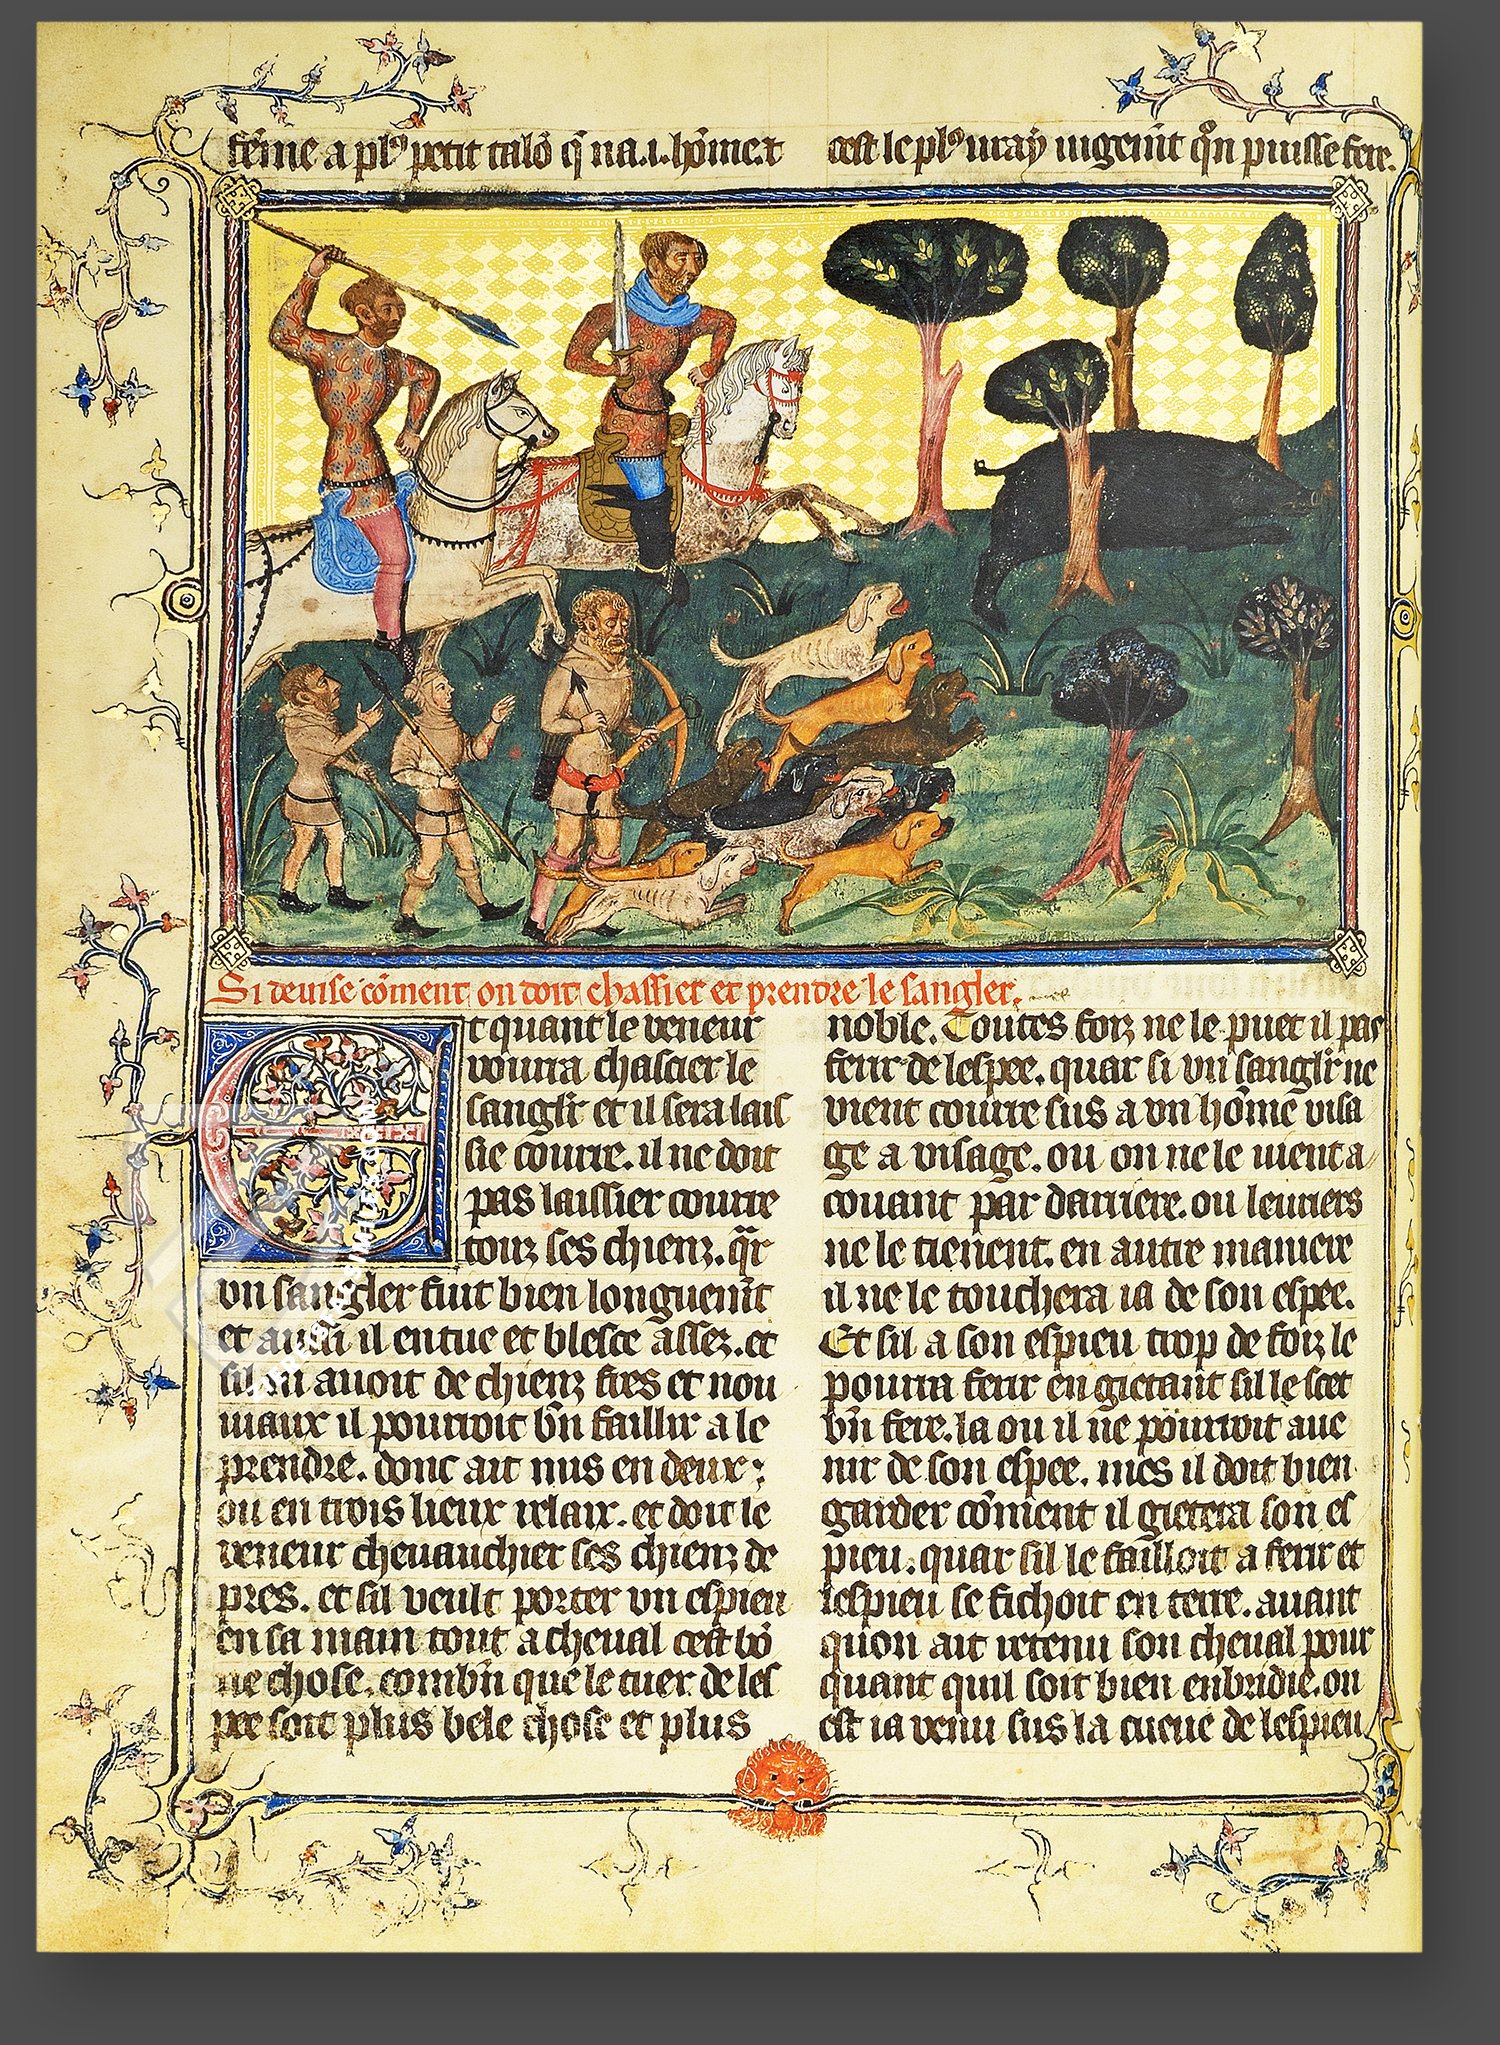 fēme a plꝰ petit talō q̄ na .i. hōme. ⁊
cest le plꝰ vray iugem̄t q̄n puisse fere.
Si deuise cōment on doit chassier et prendre le sangler.
Et quant le veneur
vourra chascier le
sangl̄r et il sera lais
sie courre. il ne doit
pas laissier courre
touz ses chienz. q̄r
vn sangler fuit bien longuem̄t
et aussi il entue et blesce assez. et
sil ni auoit de chienz fres et nou
uiaux il pourroit bn̄ faillir a le
prendre. donc ait mis en deux
ou en trois lieux relaix. et doit le
veneur cheuauchier ses chienz de
pres. et sil veult porter vn espieu
en sa main tout a cheual cest bō
ne chose. combn̄ que le tuer de les
pee soit plus bele chose et plus
noble. Toutes foiz ne le puet il pas
ferir de lespee. quar si vn sangl̄r ne
vient courre sus a vn hōme visa
ge a visage. ou on ne le vient a
couant par darriere. ou leuriers
ne le tienēnt. en autre maniere
il ne le touchera ia de son espee.
Et sil a son espieu trop de foiz le
pourra ferir en gietant sil le scet
bn̄ fere. la ou il ne pourroit aue
nir de son espee. mes il doit bien
garder cōment il gietera son es
pieu. quar sil le failloit a ferir et
lespieu se fichoit en terre. auant
quon ait retenu son cheual pour
quant quil soit bien enbridie. on
est ia venu sus la cueue de lespieu